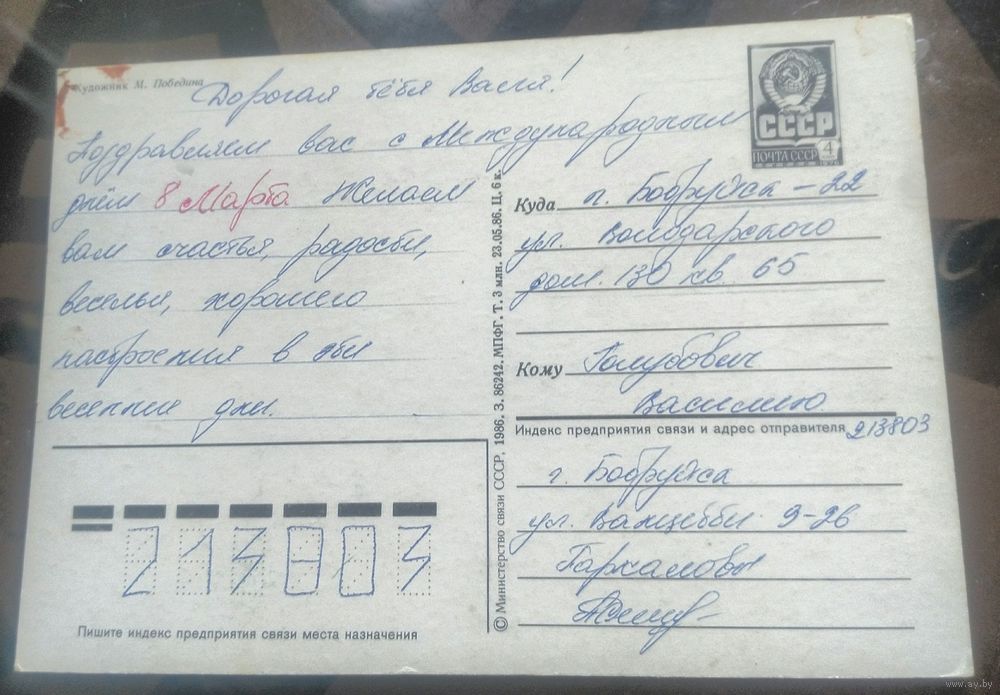 Художник М. Победина
Дорогая тётя Валя!
Поздравляем вас с Международным
днём 8 Марта. Желаем
вам счастья, радости,
веселья, хорошего
настроения в эти
весенние дни.
СССР
ПОЧТА СССР 4
Куда г. Бобруйск - 22
ул. Володарского
дом. 130 кв. 65
Кому Голубович
Василию
Индекс предприятия связи и адрес отправителя 213803
г. Бобруйск
9-26
© Министерство связи СССР, 1986. З. 86242. МПФГ. Т. 3 млн. 23.05.86. Ц. 6 к.
213803
Пишите индекс предприятия связи места назначения
www.ay.by